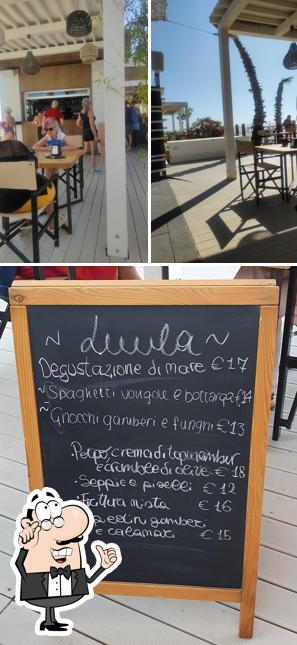 ~ Luula ~
Degustazione di mare € 17
~ Spaghetti vongole e bottarga € 14
~ Gnocchi gamberi e funghi € 13
Polpo, crema di topinambur
e crumble di olive € 18
. Seppie e piselli € 12
. Frittura mista € 16
gamberi
e calamari € 15